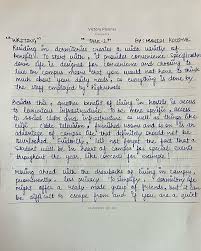 Victory Planner
"WRITING" "TASK-2"
Residing in dormitories creates a wide variety of
benefits. To start with, it provides convenience. Specifically,
dorm life is designed for convenience and choosing to
live on campus means that you would not have to think
much about your daily needs, as everything is done by
the staff employed by
Besides this, another benefit of living in hostels is access
to luxurious infrastructure. To be more specific, access
to social clubs and infrastructure as well as things like
high cable television, furnished rooms and so on is an
advantage of campus life that definitely should not be
overlooked. Evidently, let not forget the fact that a
student will be in heart of campus for social events
throughout the year. Like concerts for example.
Moving ahead with the drawbacks of living in campus,
less privacy. To simplify, dormitory life
might offer a ready-made group of friends, but it can
be difficult to escape from and if you are a quiet